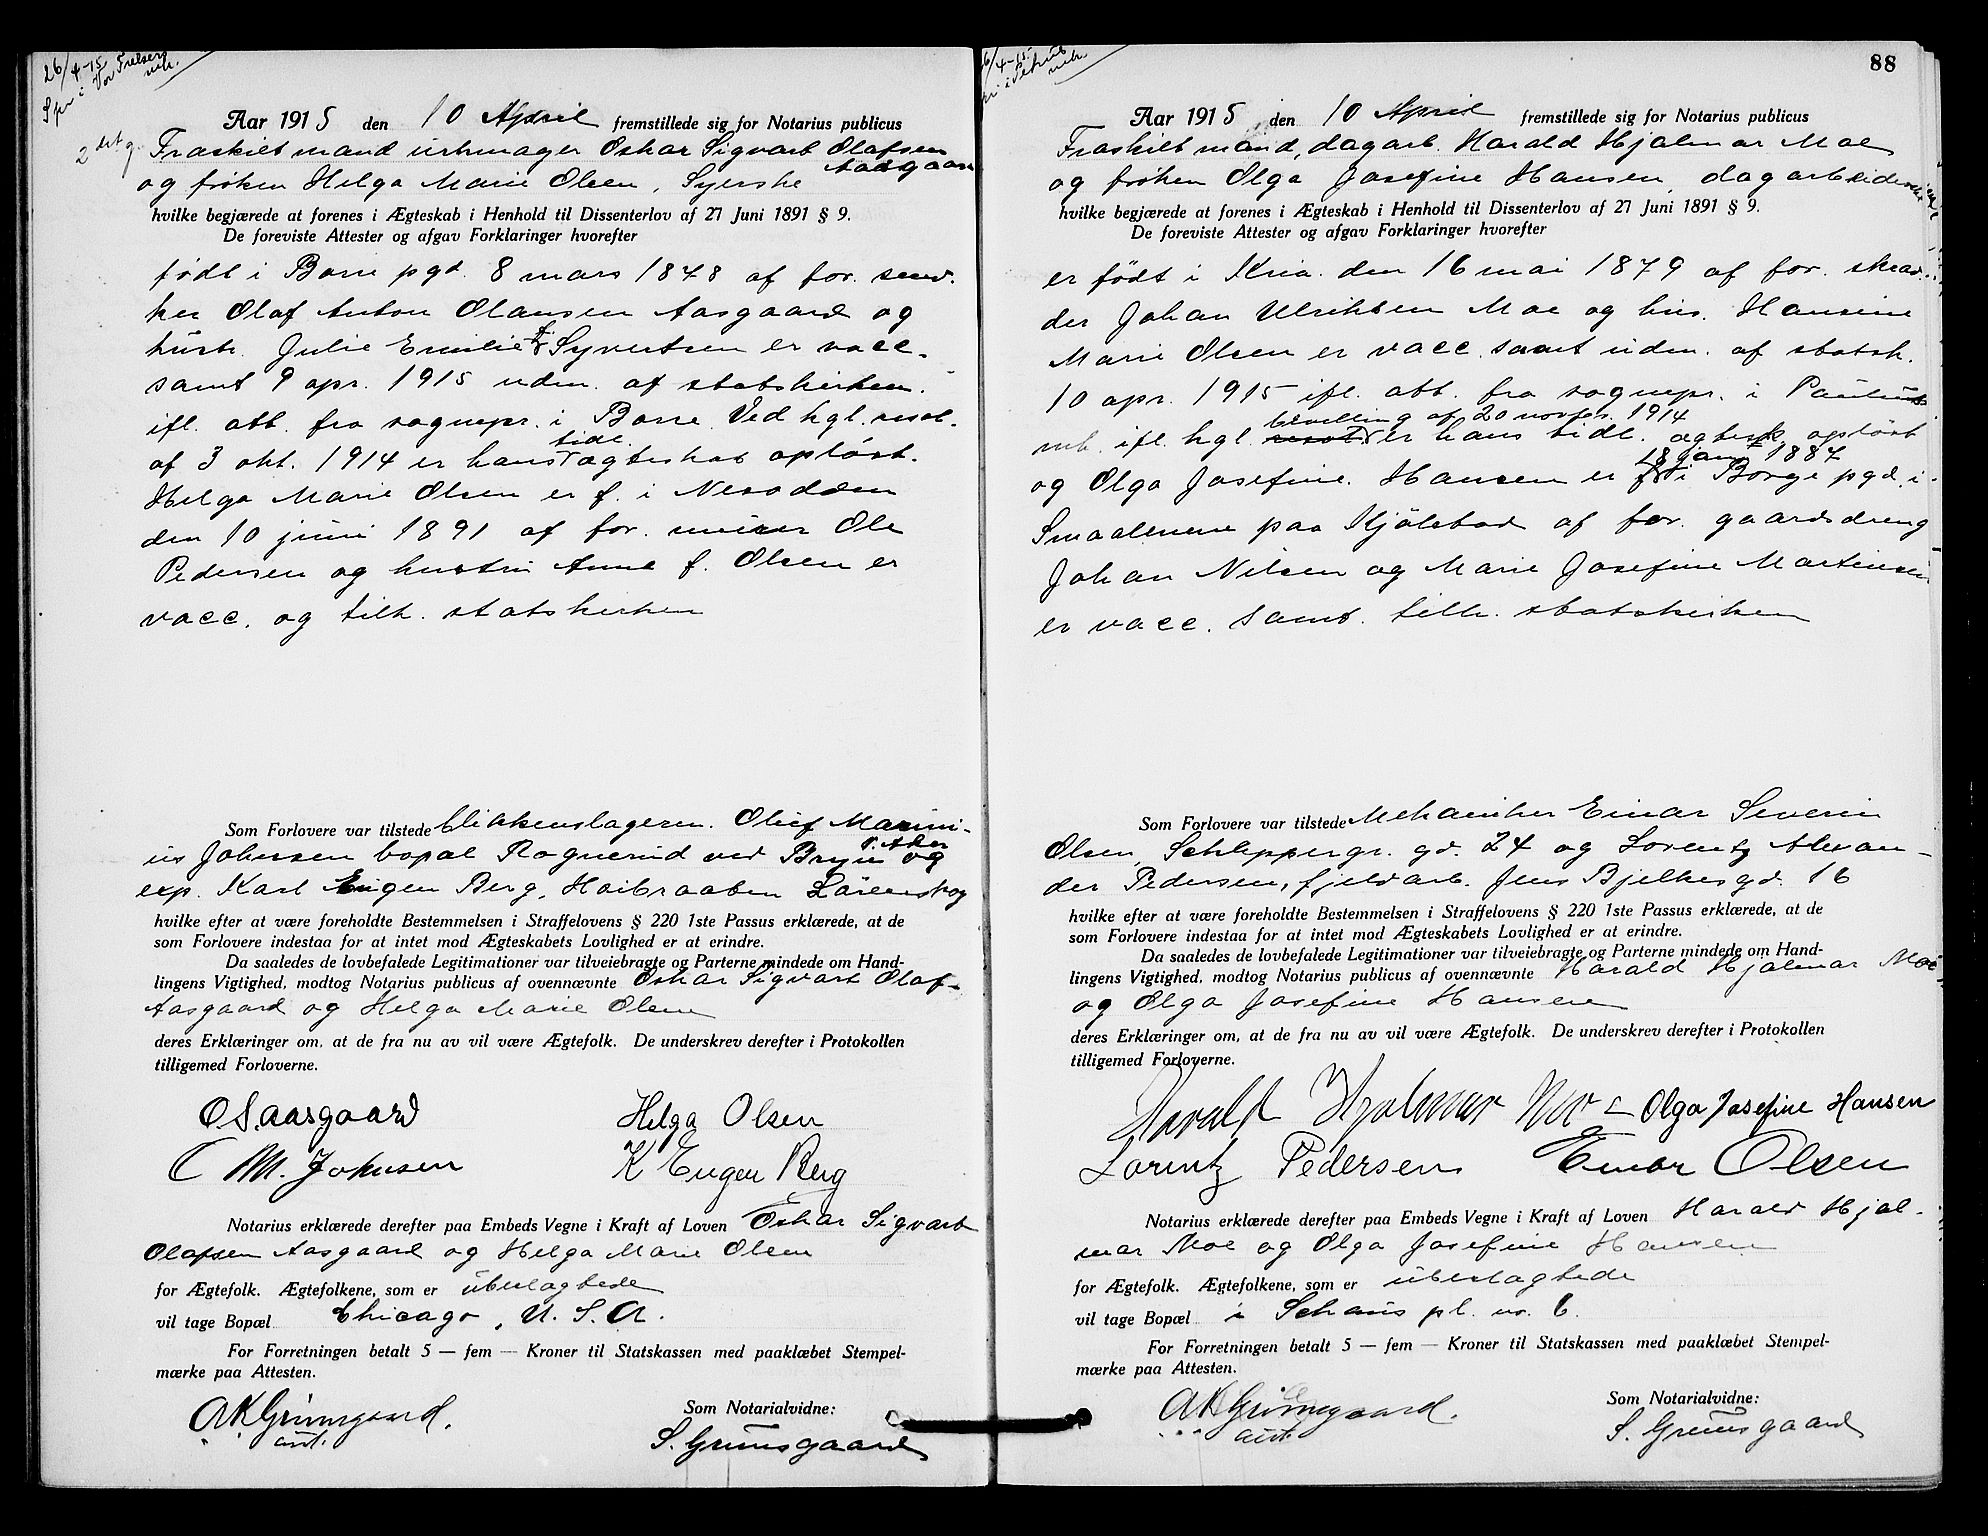 26/4-15
Spr i Vor Frelsers
mh.
2 det g.
Aar 1915 den 10 April fremstillede sig for Notarius publicus
Fraskilt mand urhmager Oskar Sigvart Olafsen
Aasgaard
og frøken Helga Marie Olsen, Syerske
hvilke begjærede at forenes i Ægteskab i Henhold til Dissenterlov af 27 Juni 1891 § 9.
De foreviste Attester og afgav Forklaringer hvorefter
født i Borre pgd. 8 mars 1878 af for.
ker Olaf Anton Olausen Aasgaard og
hustr. Julie Emilie f. Syvertsen er vacc.
samt 9 apr. 1915 udm. af statskirken.
ifl. att. fra sognepr. i Borre. Ved kgl. resol.
af 3 okt. 1914 er hans tidl. ægteskab opløst.
Helga Marie Olsen er f. i Nesodden
den 10 juni 1891 af for. murer Ole
Pedersen og hustru Anne f. Olsen er
vacc. og tilh. statskirken
Som Forlovere var tilstede blikkenslageren. Oluf Marini-
us Johnsen bopæl Rognerud ved Bryn V. Aker og
exp. Karl Eugen Berg, Hoibraaten Lørenskog
hvilke efter at være foreholdte Bestemmelsen i Straffelovens § 220 1ste Passus erklærede, at de
som Forlovere indestaa for at intet mod Ægteskabets Lovlighed er at erindre.
Da saaledes de lovbefalede Legitimationer var tilveiebragte og Parterne mindede om Hand-
lingens Vigtighed, modtog Notarius publicus af ovennævnte Oskar Sigvart Olaf-
Aasgaard og Helga Marie Olsen
deres Erklæringer om, at de fra nu av vil være Ægtefolk. De underskrev derefter i Protokollen
tilligemed Forloverne.
O.S. Aasgaard Helga Olsen
O M. Johnsen K Eugen Berg
Notarius erklærede derefter paa Embeds Vegne i Kraft af Loven Oskar Sigvart
Olafsen Aasgaard og Helga Marie Olsen
for Ægtefolk. Ægtefolkene, som er ubeslægtede
vil tage Bopæl Chicago, U.S.A.
For Forretningen betalt 5 — fem — Kroner til Statskassen med paaklæbet Stempel-
mærke paa Attesten.
A K Grimsgaard.
aut.
Som Notarialvidne:
S. Grimsgaard
88
26/4-15
Spr i Petrus
mh.
Aar 1915 den 10 April fremstillede sig for Notarius publicus
Fraskilt mand, dagarb. Harald Hjalmar Moe
og frøken Olga Josefine Hansen, dagarbeiderske
hvilke begjærede at forenes i Ægteskab i Henhold til Dissenterlov af 27 Juni 1891 § 9.
De foreviste Attester og afgav Forklaringer hvorefter
er født i Kria. den 16 mai 1879 af for. skræd-
der Johan Ulriksen Moe og hus. Hansine
Marie Olsen er vacc. samt udm. af statsk.
10 apr. 1915 ifl. att. fra sognepr. i Paulus
mh. ifl. kgl. resol. bevilling af 20 novbr. 1914 er hans tidl. ægtesk. opløst
og Olga Josefine Hansen er f. 18 jan 1887 i Borge pgd. i
Smaalenene paa Kjølstad af for. gaardsdreng
Johan Nilsen og Marie Josefine Martinsen
er vacc. samt. tilh. statskirken
Som Forlovere var tilstede Mekaniker Einar Severin
Olsen, Schleppergr. gd. 24 og Lorentz Alexan-
der Pedersen, fjeldarb. Jens Bjelkesgd. 16
hvilke efter at være foreholdte Bestemmelsen i Straffelovens § 220 1ste Passus erklærede, at de
som Forlovere indestaa for at intet mod Ægteskabets Lovlighed er at erindre.
Da saaledes de lovbefalede Legitimationer var tilveiebragte og Parterne mindede om Hand-
lingens Vigtighed, modtog Notarius publicus af ovennævnte Harald Hjalmar Moe
og Olga Josefine Hansen
deres Erklæringer om, at de fra nu av vil være Ægtefolk. De underskrev derefter i Protokollen
tilligemed Forloverne.
Harald Hjalmar Moe Olga Josefine Hansen
Lorentz Pedersen Einar Olsen
Notarius erklærede derefter paa Embeds Vegne i Kraft af Loven Harald Hjal-
mar Moe og Olga Josefine Hansen
for Ægtefolk. Ægtefolkene, som er ubeslægtede
vil tage Bopæl i Schous pl. no. 6.
For Forretningen betalt 5 — fem — Kroner til Statskassen med paaklæbet Stempel-
mærke paa Attesten.
A K Grimsgaard.
aut
Som Notarialvidne:
S. Grimsgaard